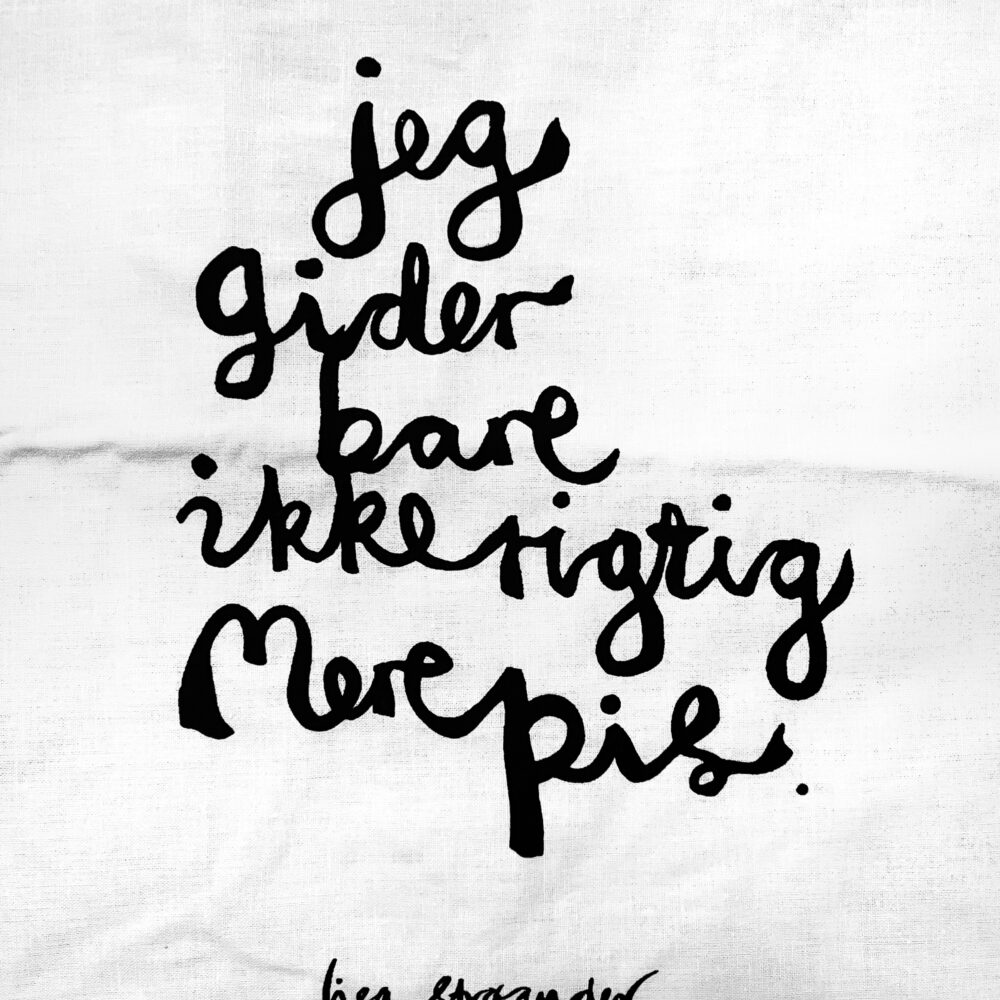 jeg
gider
bare
ikke rigtig
Mere pis.